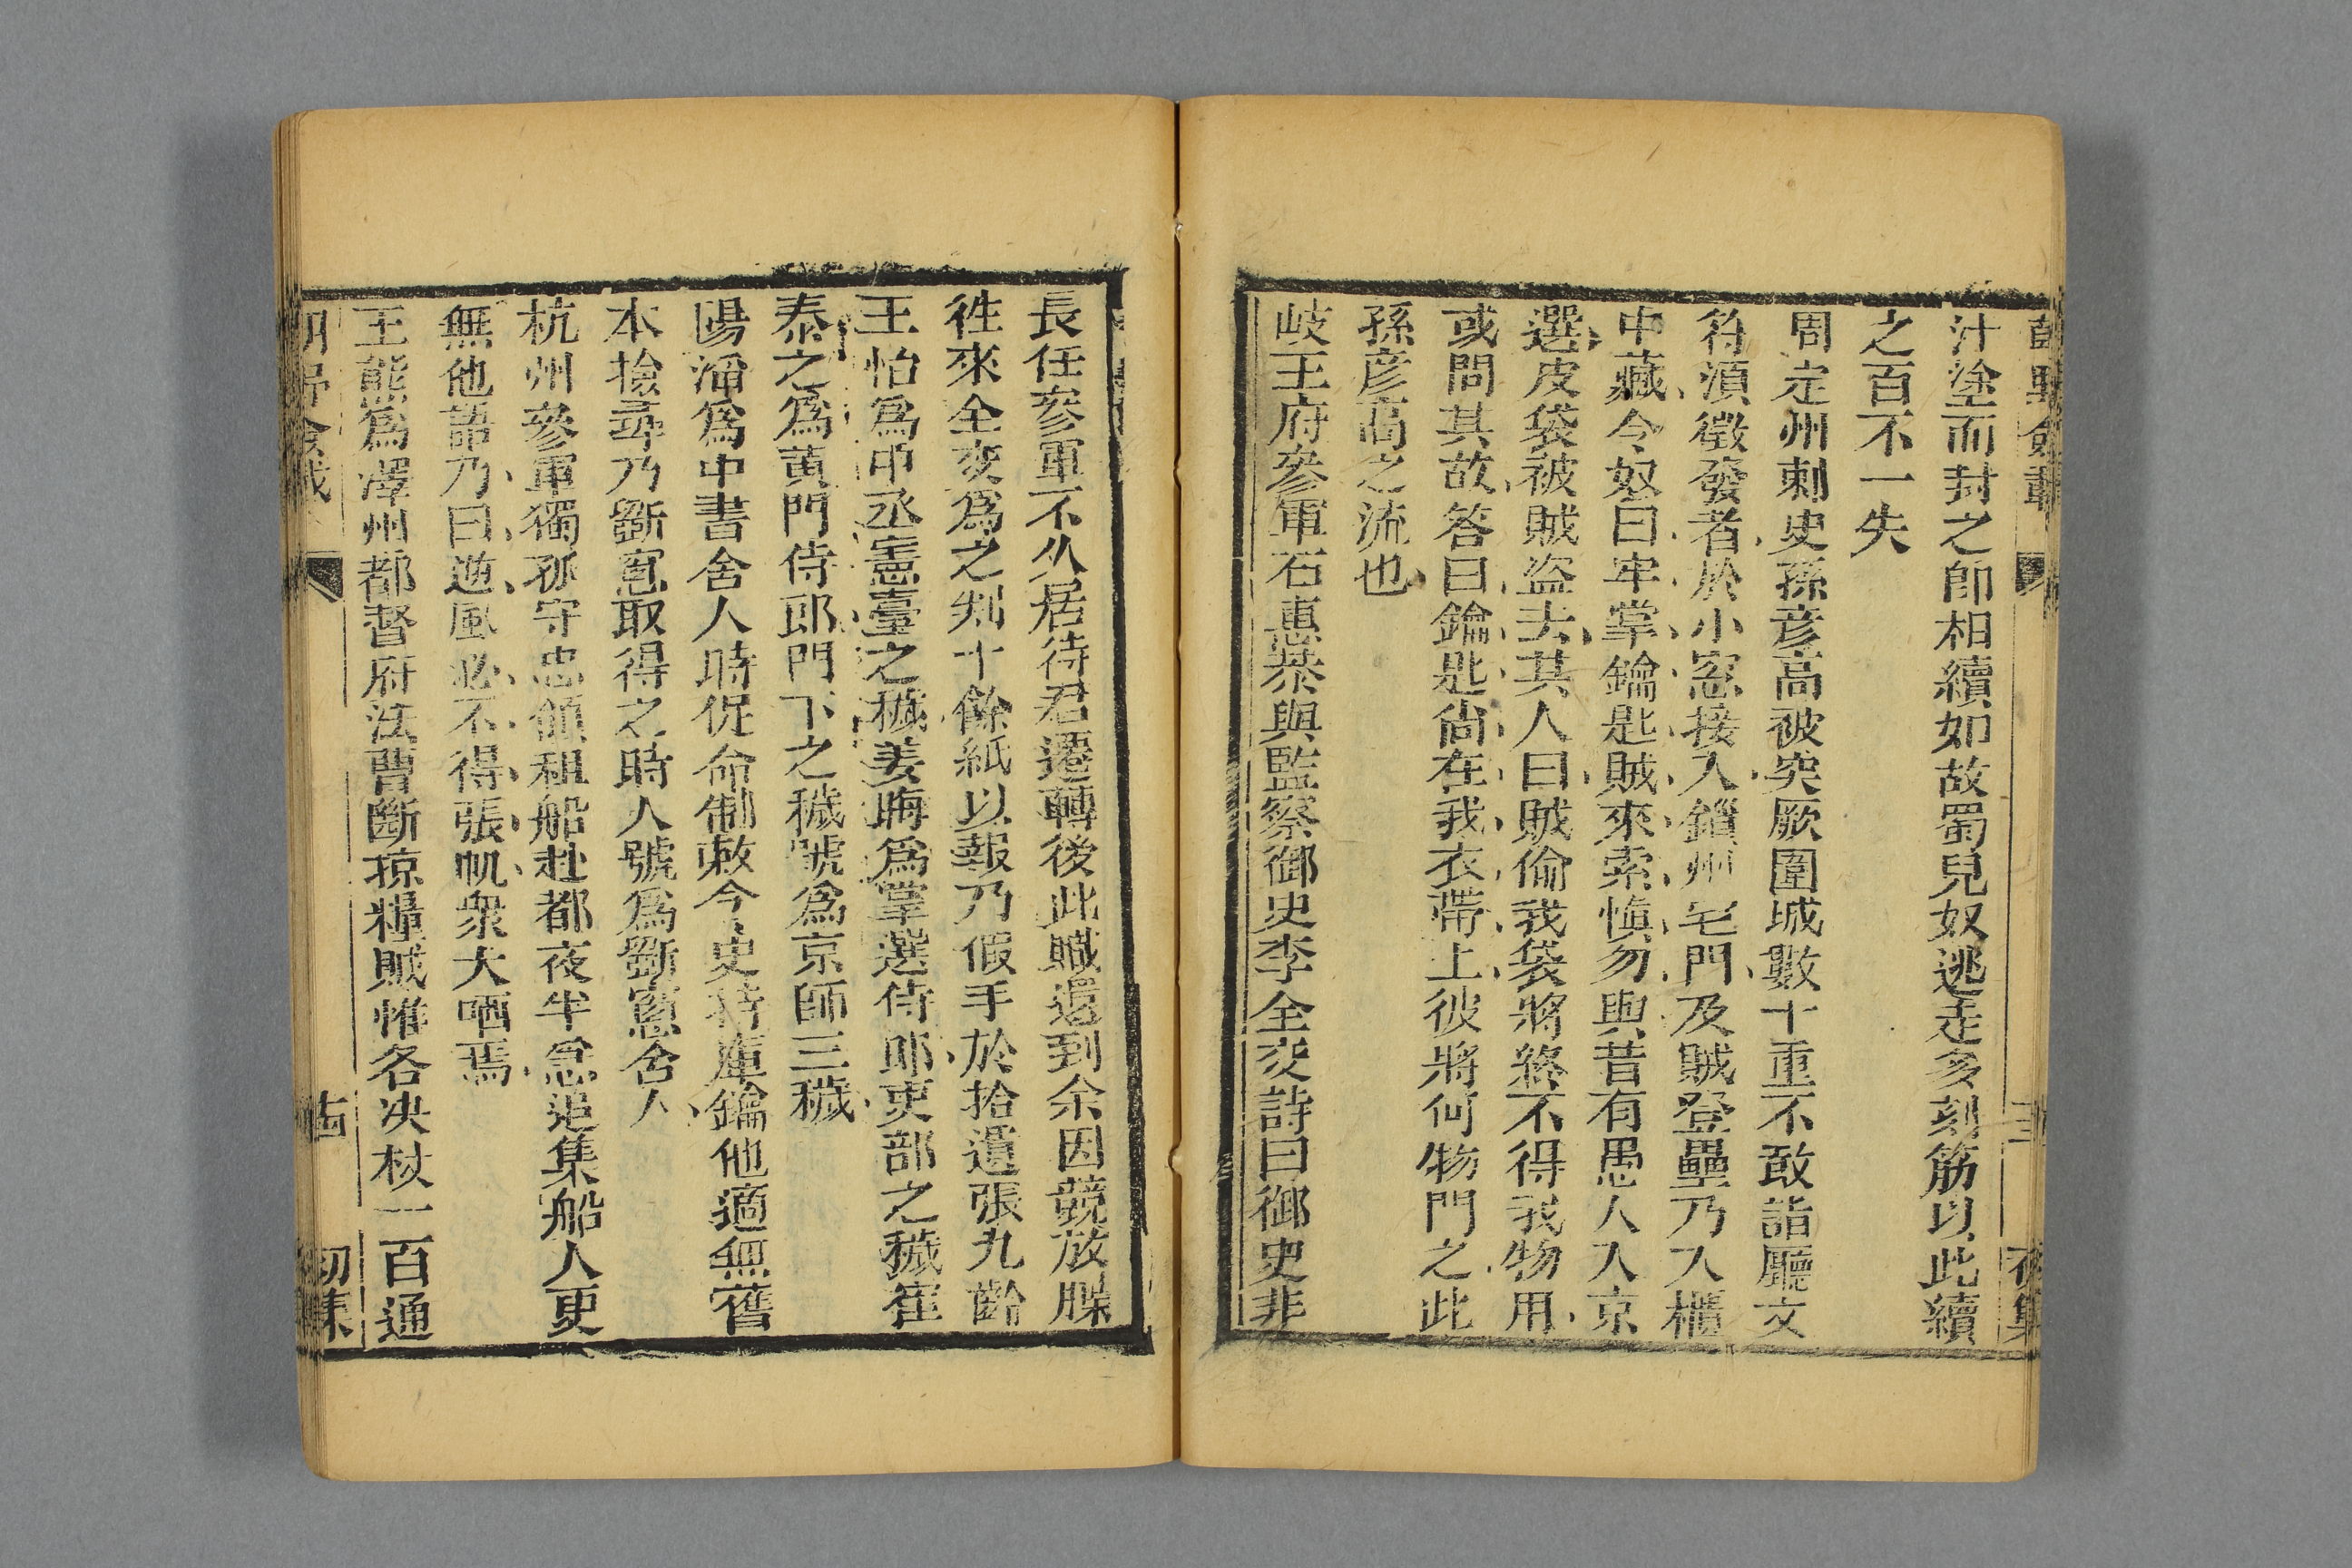 汁塗而封之卽相續如故蜀兒奴逃走多刻筋以此續
之百不一失
周定州刺史孫彦高被突厥圍城數十重不敢詣廳文
符須徵發者於小窓接入鎖州宅門及賊登壘乃入櫃
中藏令奴曰牢掌鑰匙賊來索愼勿與昔有愚人入京
選皮袋被賊盗去其人曰賊偷我袋將終不得我物用
或問其故答曰鑰匙尙在我衣帶上彼將何物開之此
孫彦高之流也
岐王府參軍石惠恭與監察御史李全交詩曰御史非
長任參軍不久居待君遷轉後此職還到余因競放牒
徃來全交爲之判十餘紙以報乃假手於拾遺張九齡
王怡爲中丞憲臺之穢姜晦爲掌選侍郎吏部之穢崔
泰之爲黄門侍郎門下之穢號爲京師三穢
陽滔爲中書舍人時促命制敕令史持庫鑰他適無舊
本撿尋乃斵窓取得之時人號爲斵窓舍人
杭州參軍獨孤守忠領租船赴都夜半急追集船人更
無他語乃曰逆風必不得張帆衆大哂焉
王熊爲澤州都督府法曹斷掠糧賊惟各决杖一百通
朝野僉載
十四
初集